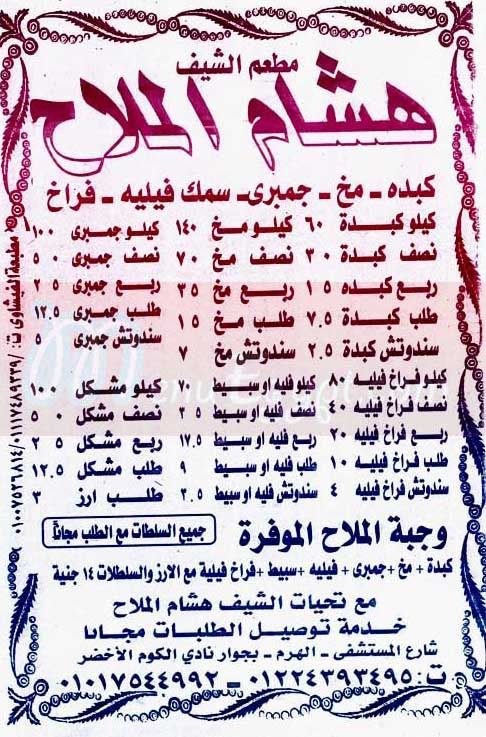 مطعم الشيف
هشام الملاح
كبده - مخ - جمبرى - سمك فيليه - فراخ
كيلو كبدة ٦٠ كيلو مخ ١٤٠ كيلو جمبرى ١٠٠
نصف كبدة ٣٠ نصف مخ ٧٠ نصف جمبرى ٥٠
ربع كبده ١٥ ربع مخ ٣٥ ربع جمبرى ٢٥
طلب كبدة ٧.٥ طلب مخ ١٥ طلب جمبرى ١٢.٥
سندوتش كبدة ٢.٥ سندوتش مخ ٧ سندوتش جمبرى ٥
كيلو فراخ فيليه ٨٠ كيلو فليه او سبيط ٧٠ كيلو مشكل ١٠٠
نصف فراخ فيليه ٤٠ نصف فليه او سبيط ٣٥ نصف مشكل ٥٠
ربع فراخ فيليه ٢٠ ربع فليه او سبيط ١٧.٥ ربع مشكل ٢٥
طلب فراخ فيليه ١٠ طلب فليه او سبيط ٩ طلب مشكل ١٢.٥
سندوتش فراخ فيليه ٤ سندوتش فليه او سبيط ٢.٥ طلب ارز ٣
وجبة الملاح الموفرة
جميع السلطات مع الطلب مجاناً
كبدة + مخ + جمبرى + فيليه + سبيط + فراخ فيلية مع الارز والسلطلات ١٤ جنية
مع تحيات الشيف هشام الملاح
خدمة توصيل الطلبات مجانا
شارع المستشفى - الهرم - بجوار نادي الكوم الأخضر
ت: ٠١٢٢٤٣٩٣٤٩٥ - ٠١٠١٧٥٤٤٩٩٢